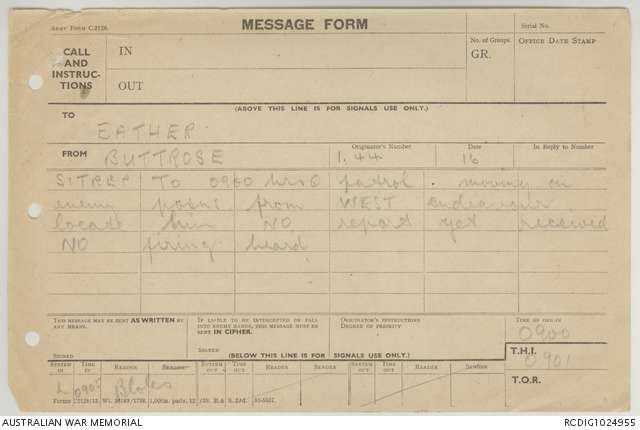 Army Form C.2128.
MESSAGE FORM
Serial No.
CALL AND INSTRUCTIONS
IN
OUT
No. of Groups.
GR.
Office Date Stamp
(ABOVE THIS LINE IS FOR SIGNALS USE ONLY.)
TO
EATHER
FROM
BUTTROSE
Originator's Number
1.44
Date
16
In Reply to Number
SITREP TO 0900 hrs patrol . moving on
enemy posns from WEST endeavour
locate him NO report yet received
NO firing heard
THIS MESSAGE MAY BE SENT AS WRITTEN BY ANY MEANS.
IF LIABLE TO BE INTERCEPTED OR FALL INTO ENEMY HANDS, THIS MESSAGE MUST BE SENT IN CIPHER.
ORIGINATOR'S INSTRUCTIONS
DEGREE OF PRIORITY
TIME OF ORIGIN
0900
SIGNED
SIGNED
(BELOW THIS LINE IS FOR SIGNALS USE ONLY.)
T.H.I.
0901
SYSTEM IN
TIME IN
READER
SENDER
SYSTEM OUT
TIME OUT
READER
SENDER
SYSTEM OUT
TIME OUT
READER
SENDER
T.O.R.
AUSTRALIAN WAR MEMORIAL
RCDIG1024955